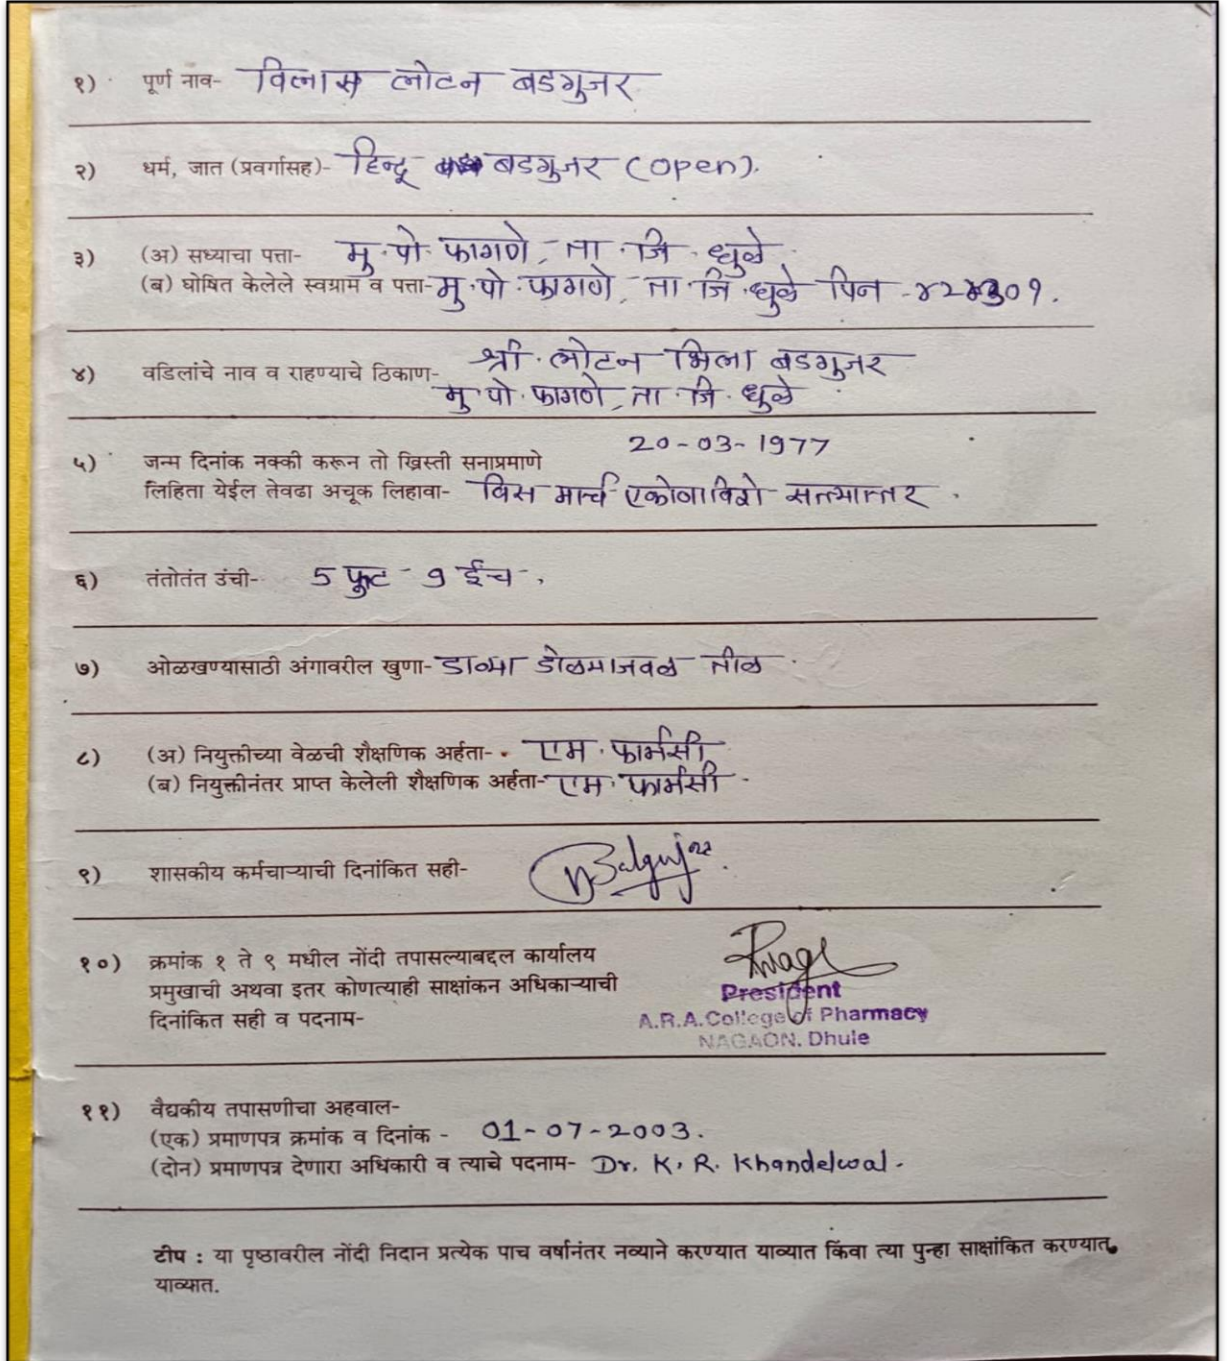 १) पूर्ण नाव- विलास लोटन बडगुजर
२) धर्म, जात (प्रवर्गासह)- हिन्दू बडगुजर (open).
३) (अ) सध्याचा पत्ता- मु.पो. फागणे, ता.जि. धुळे
(ब) घोषित केलेले स्वग्राम व पत्ता- मु.पो. फागणे, ता.जि.धुळे पिन -४२४३०१.
४) वडिलांचे नाव व राहण्याचे ठिकाण- श्री. लोटन भिला बडगुजर
मु.पो. फागणे, ता.जि. धुळे
20-03-1977
५) जन्म दिनांक नक्की करून तो ख्रिस्ती सनाप्रमाणे
लिहिता येईल तेवढा अचूक लिहावा- विस मार्च एकोणाविशे सत्त्यात्तर .
६) तंतोतंत उंची- 5 फूट - 9 ईंच .
७) ओळखण्यासाठी अंगावरील खुणा- डाव्या डोळ्याजवळ तीळ
८) (अ) नियुक्तीच्या वेळची शैक्षणिक अर्हता- एम. फार्मसी
(ब) नियुक्तीनंतर प्राप्त केलेली शैक्षणिक अर्हता- एम. फार्मसी
९) शासकीय कर्मचाऱ्याची दिनांकित सही-
१०) क्रमांक १ ते ९ मधील नोंदी तपासल्याबद्दल कार्यालय
प्रमुखाची अथवा इतर कोणत्याही साक्षांकन अधिकाऱ्याची
दिनांकित सही व पदनाम-
President
A.R.A.College of Pharmacy
NAGAON. Dhule
११) वैद्यकीय तपासणीचा अहवाल-
(एक) प्रमाणपत्र क्रमांक व दिनांक - 01-07-2003.
(दोन) प्रमाणपत्र देणारा अधिकारी व त्याचे पदनाम- Dr. K. R. Khandelwal.
टीप : या पृष्ठावरील नोंदी निदान प्रत्येक पाच वर्षानंतर नव्याने करण्यात याव्यात किंवा त्या पुन्हा साक्षांकित करण्यात
याव्यात.